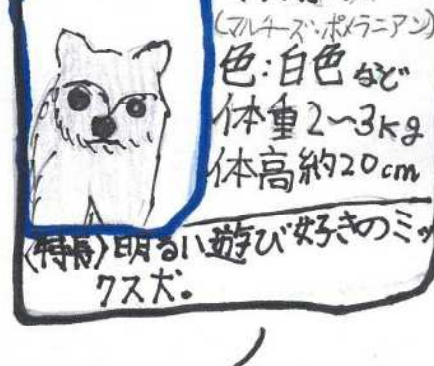 (マルチーズ・ポメラニアン)
色:白色など
体重2〜3kg
体高約20cm
〈特長〉明るい遊び好きのミッ
クス犬。